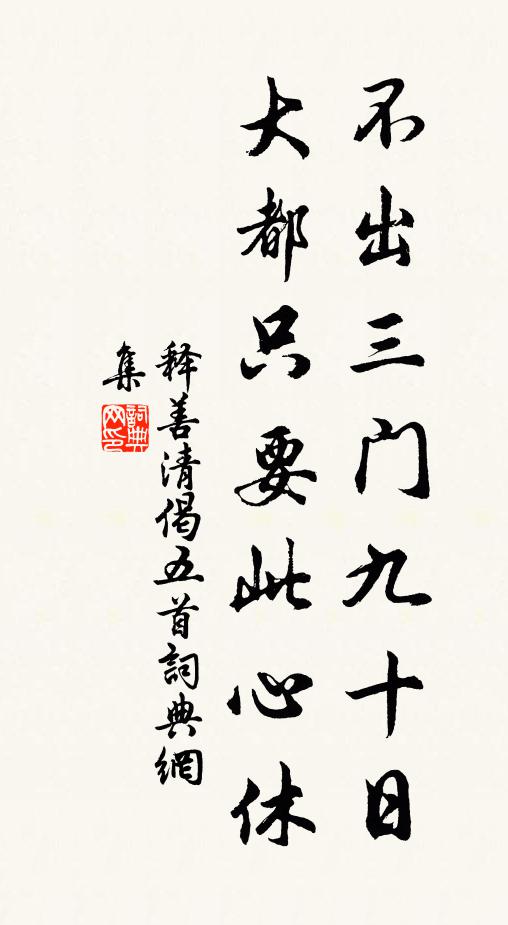 不出三门九十日
大都只要此心休
释善清偈五首詞典網
集
詞典网印